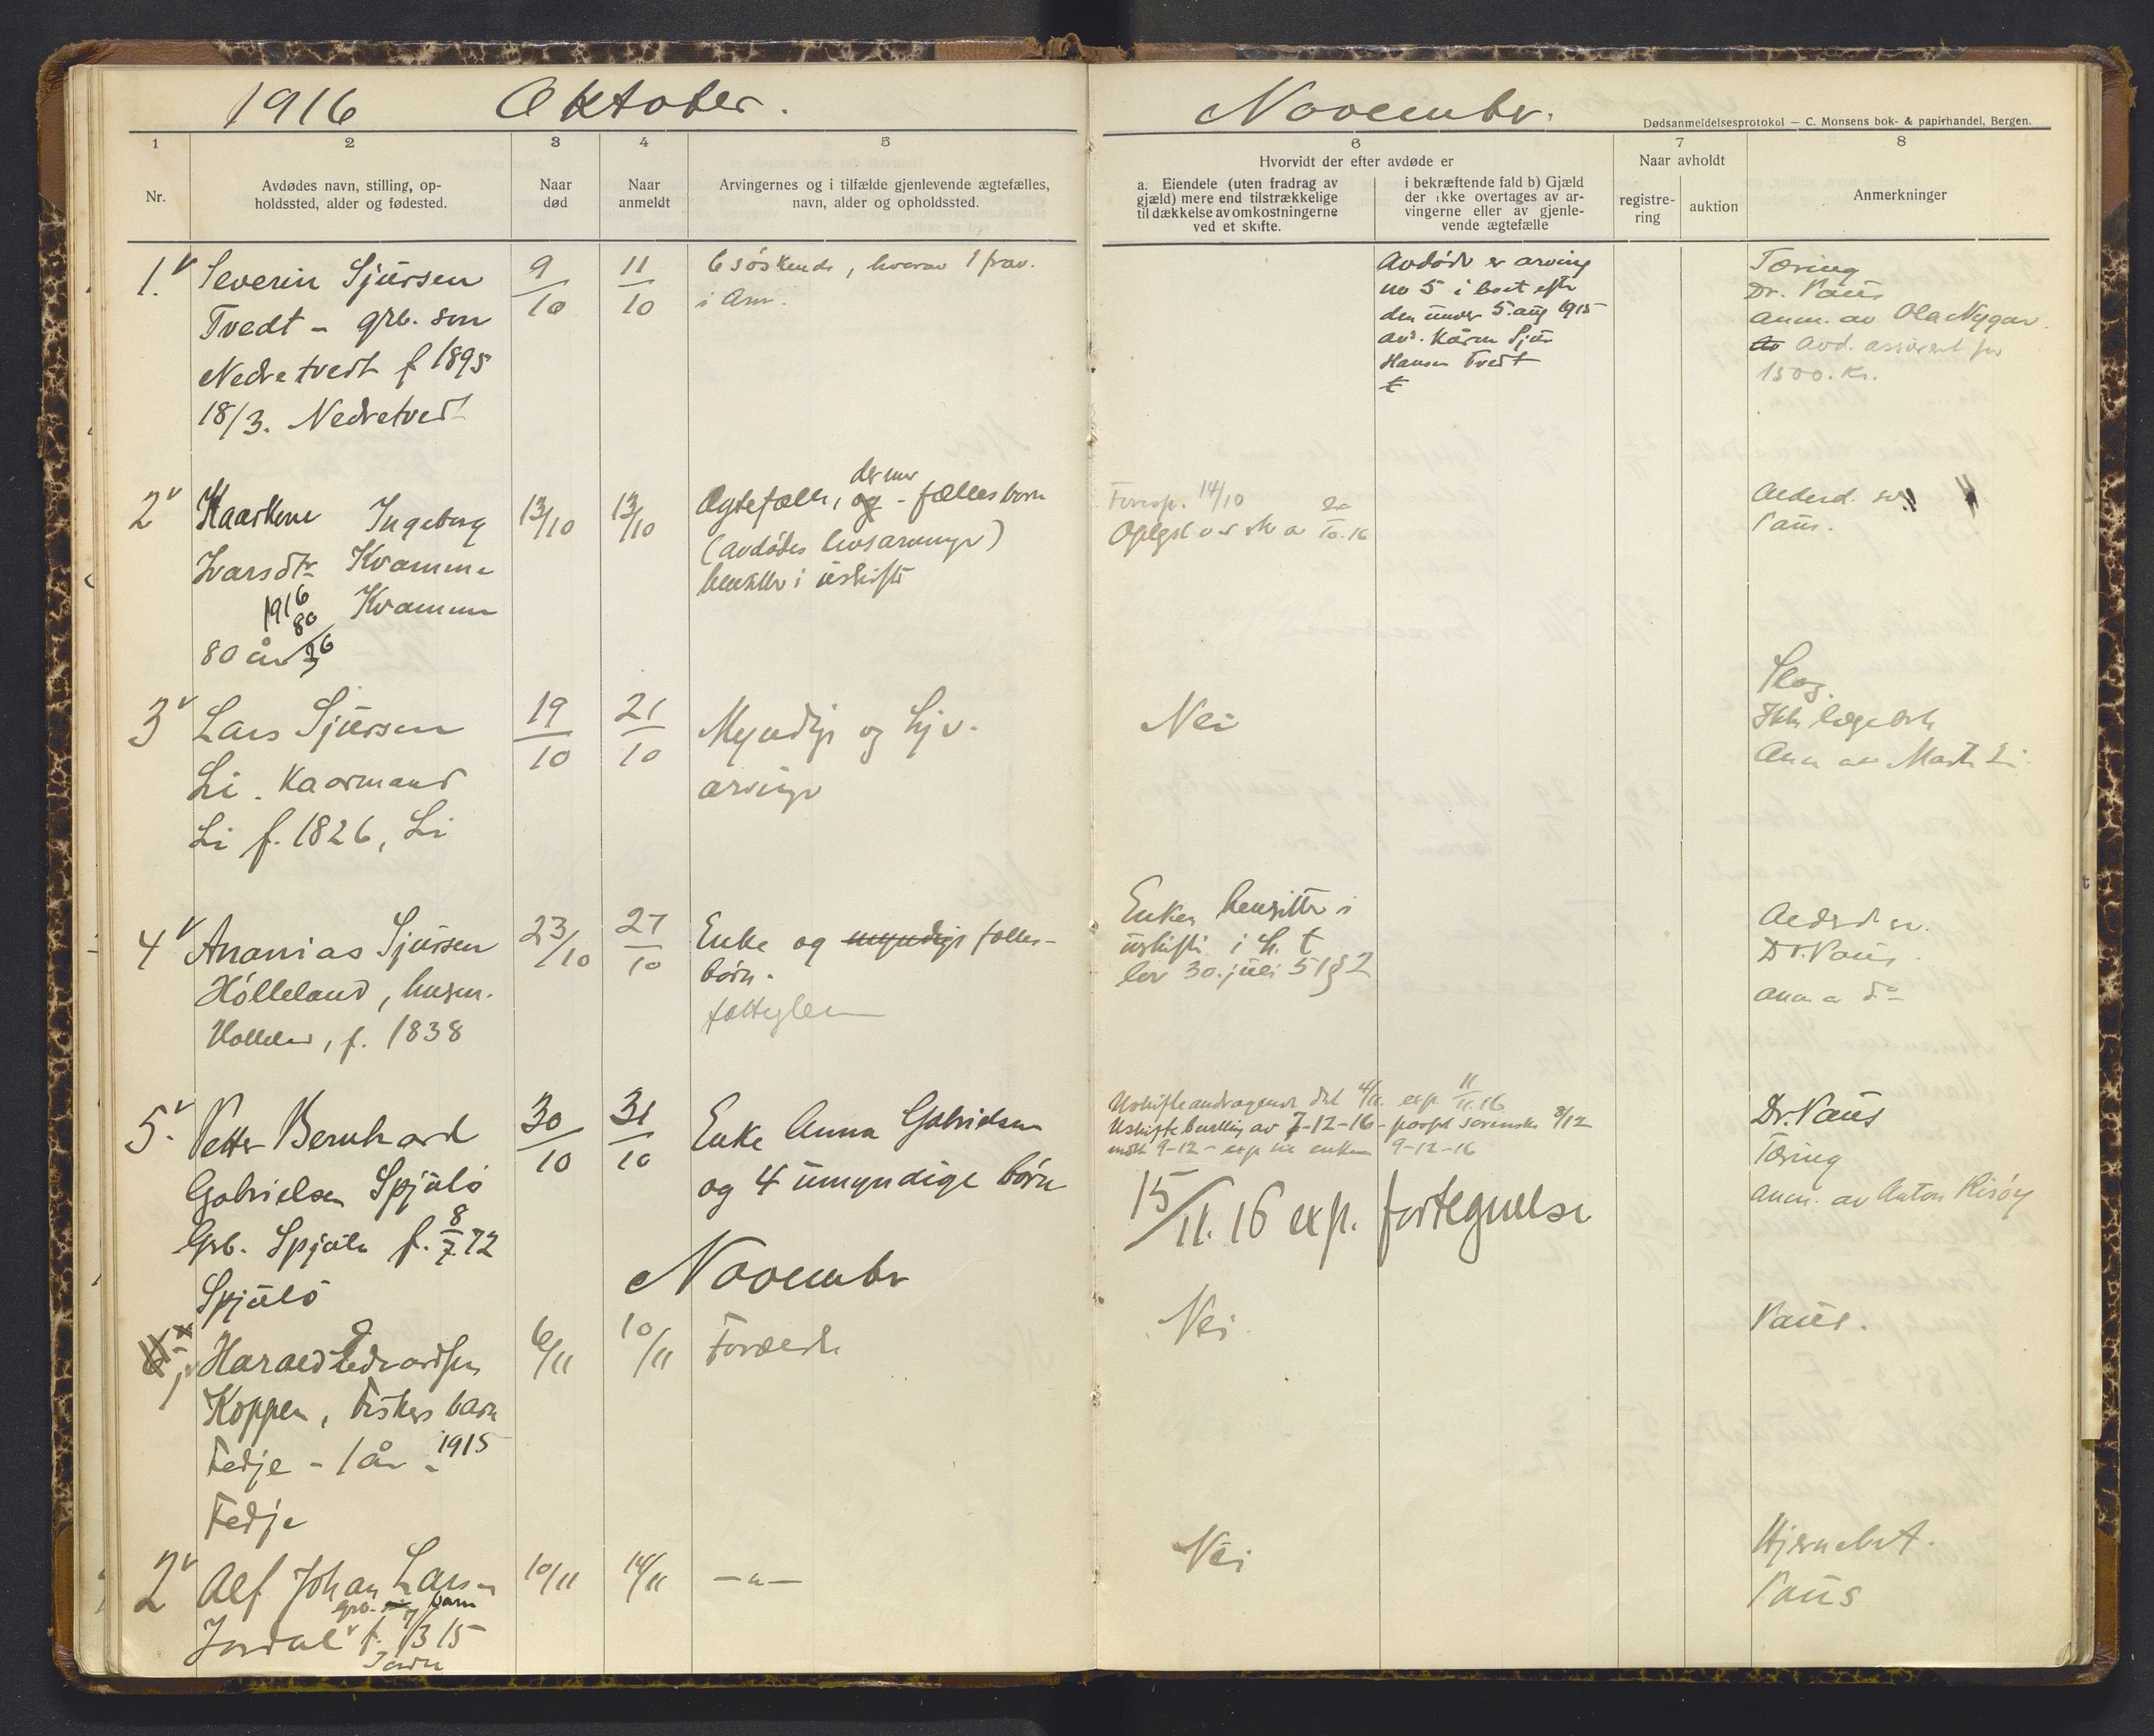 1916 Oktober. Novembr.
Dødsanmeldelsesprotokol — C. Monsens bok- & papirhandel, Bergen.
1 2 3 4 5 6 7 8
Nr.
Avdødes navn, stilling, op-
holdssted, alder og fødested.
Naar
død
Naar
anmeldt
Arvingernes og i tilfælde gjenlevende ægtefælles,
navn, alder og opholdssted.
Hvorvidt der efter avdøde er
a. Eiendele (uten fradrag av
gjæld) mere end tilstrækkelige
til dækkelse av omkostningerne
ved et skifte.
i bekræftende fald b) Gjæld
der ikke overtages av ar-
vingerne eller av gjenle-
vende ægtefælle
Naar avholdt
registre-
ring
auktion
Anmerkninger
1. Severin Sjursen
Tvedt - grb. søn
Nedretvedt f 1895
18/3. Nedretvedt
9/10
11/10
6 søskende, hvorav 1 frav.
i Am.
Avdøde er arving
no 5 i boet efter
den under 5. aug 1915
avd. Sjur
Hansen Tvedt
Tæring
Dr. Paus
anm. av Ola Nygar
Avd. assurert for
1500. Kr.
2 Kaarkone Ingeborg
Ivarsdtr Kvamme
1916 Kvamme
80
80 år 36
13/10
13/10
Ægtefælle, og - fællesbørn
(avdødes livsarvinger)
i uskifte
Foresp. 14/10
Alderd. sv.
Paus.
3 Lars Sjursen
Li. Kaarmand
Li f. 1826, Li
19/10
21/10
Myndige og hjv.
arvinger
Nei
Slag.
Ikke lægebeh
Anm av Li
4 Ananias Sjursen
Hølleland, husm.
f. 1838
23/10
27/10
Enke og myndige fælles-
børn.
Enken hensitter i
uskifte i h. t
lov 30. juli 51 § 2
Alderd sv.
Dr. Paus.
anm a do
5. Petter Bernhard
Gabrielsen Spjutø
Grb. Spjutø f. 8/7. 72
Spjutø
30/10
31/10
Enke Anna Gabrielsen
og 4 umyndige børn
Uskifteandragende 4/11. exp 11/11.16
Uskiftebevilling av 7-12-16 - 8/12
9-12 - exp til enken 9-12-16
15/11. 16 exp. fortegnelse
Dr. Paus
Tæring
anm. av Anton Risøy
Novembr
1 Harald Edvardsen
Koppen, Fiskers barn
Fedje - 1 år - 1915
Fedje
6/11
10/11
Forældre
Nei
Paus.
2 Alf Johan Larsen
Grb. barn
Jordal f. 7/3 15
10/11
14/11
— " —
Nei
Hjernebet.
Paus